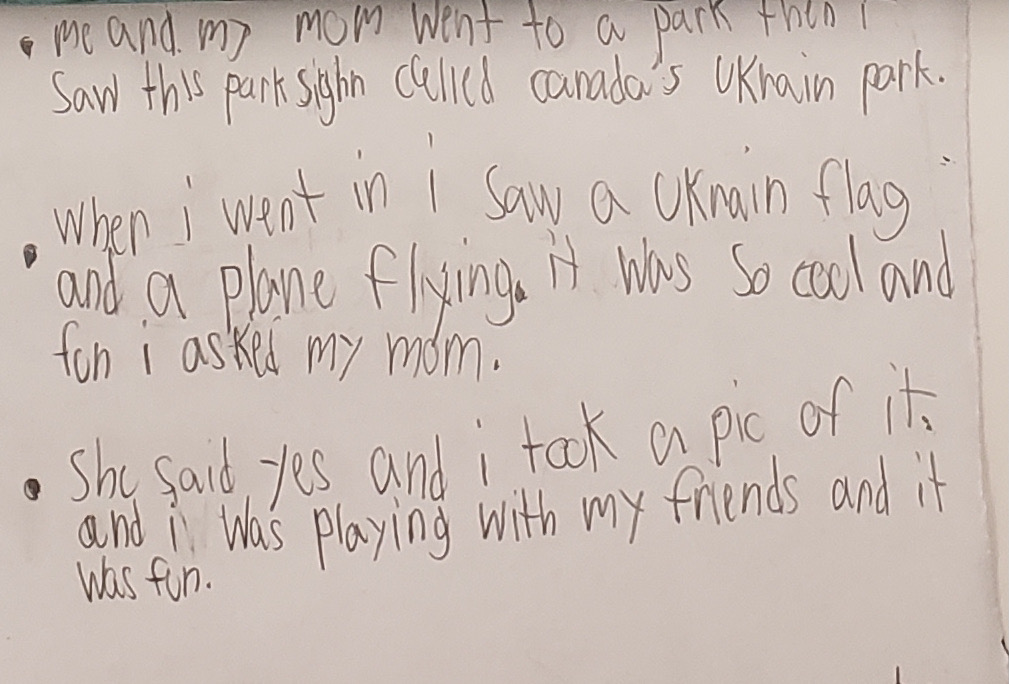 • me and my mom went to a park then i
saw this park sighn called canada's UKrain park.
• when i went in i saw a UKrain flag
and a plane flying. it was so cool and
fun i asked my mom.
• She said yes and i took a pic of it.
and i was playing with my friends and it
was fun.